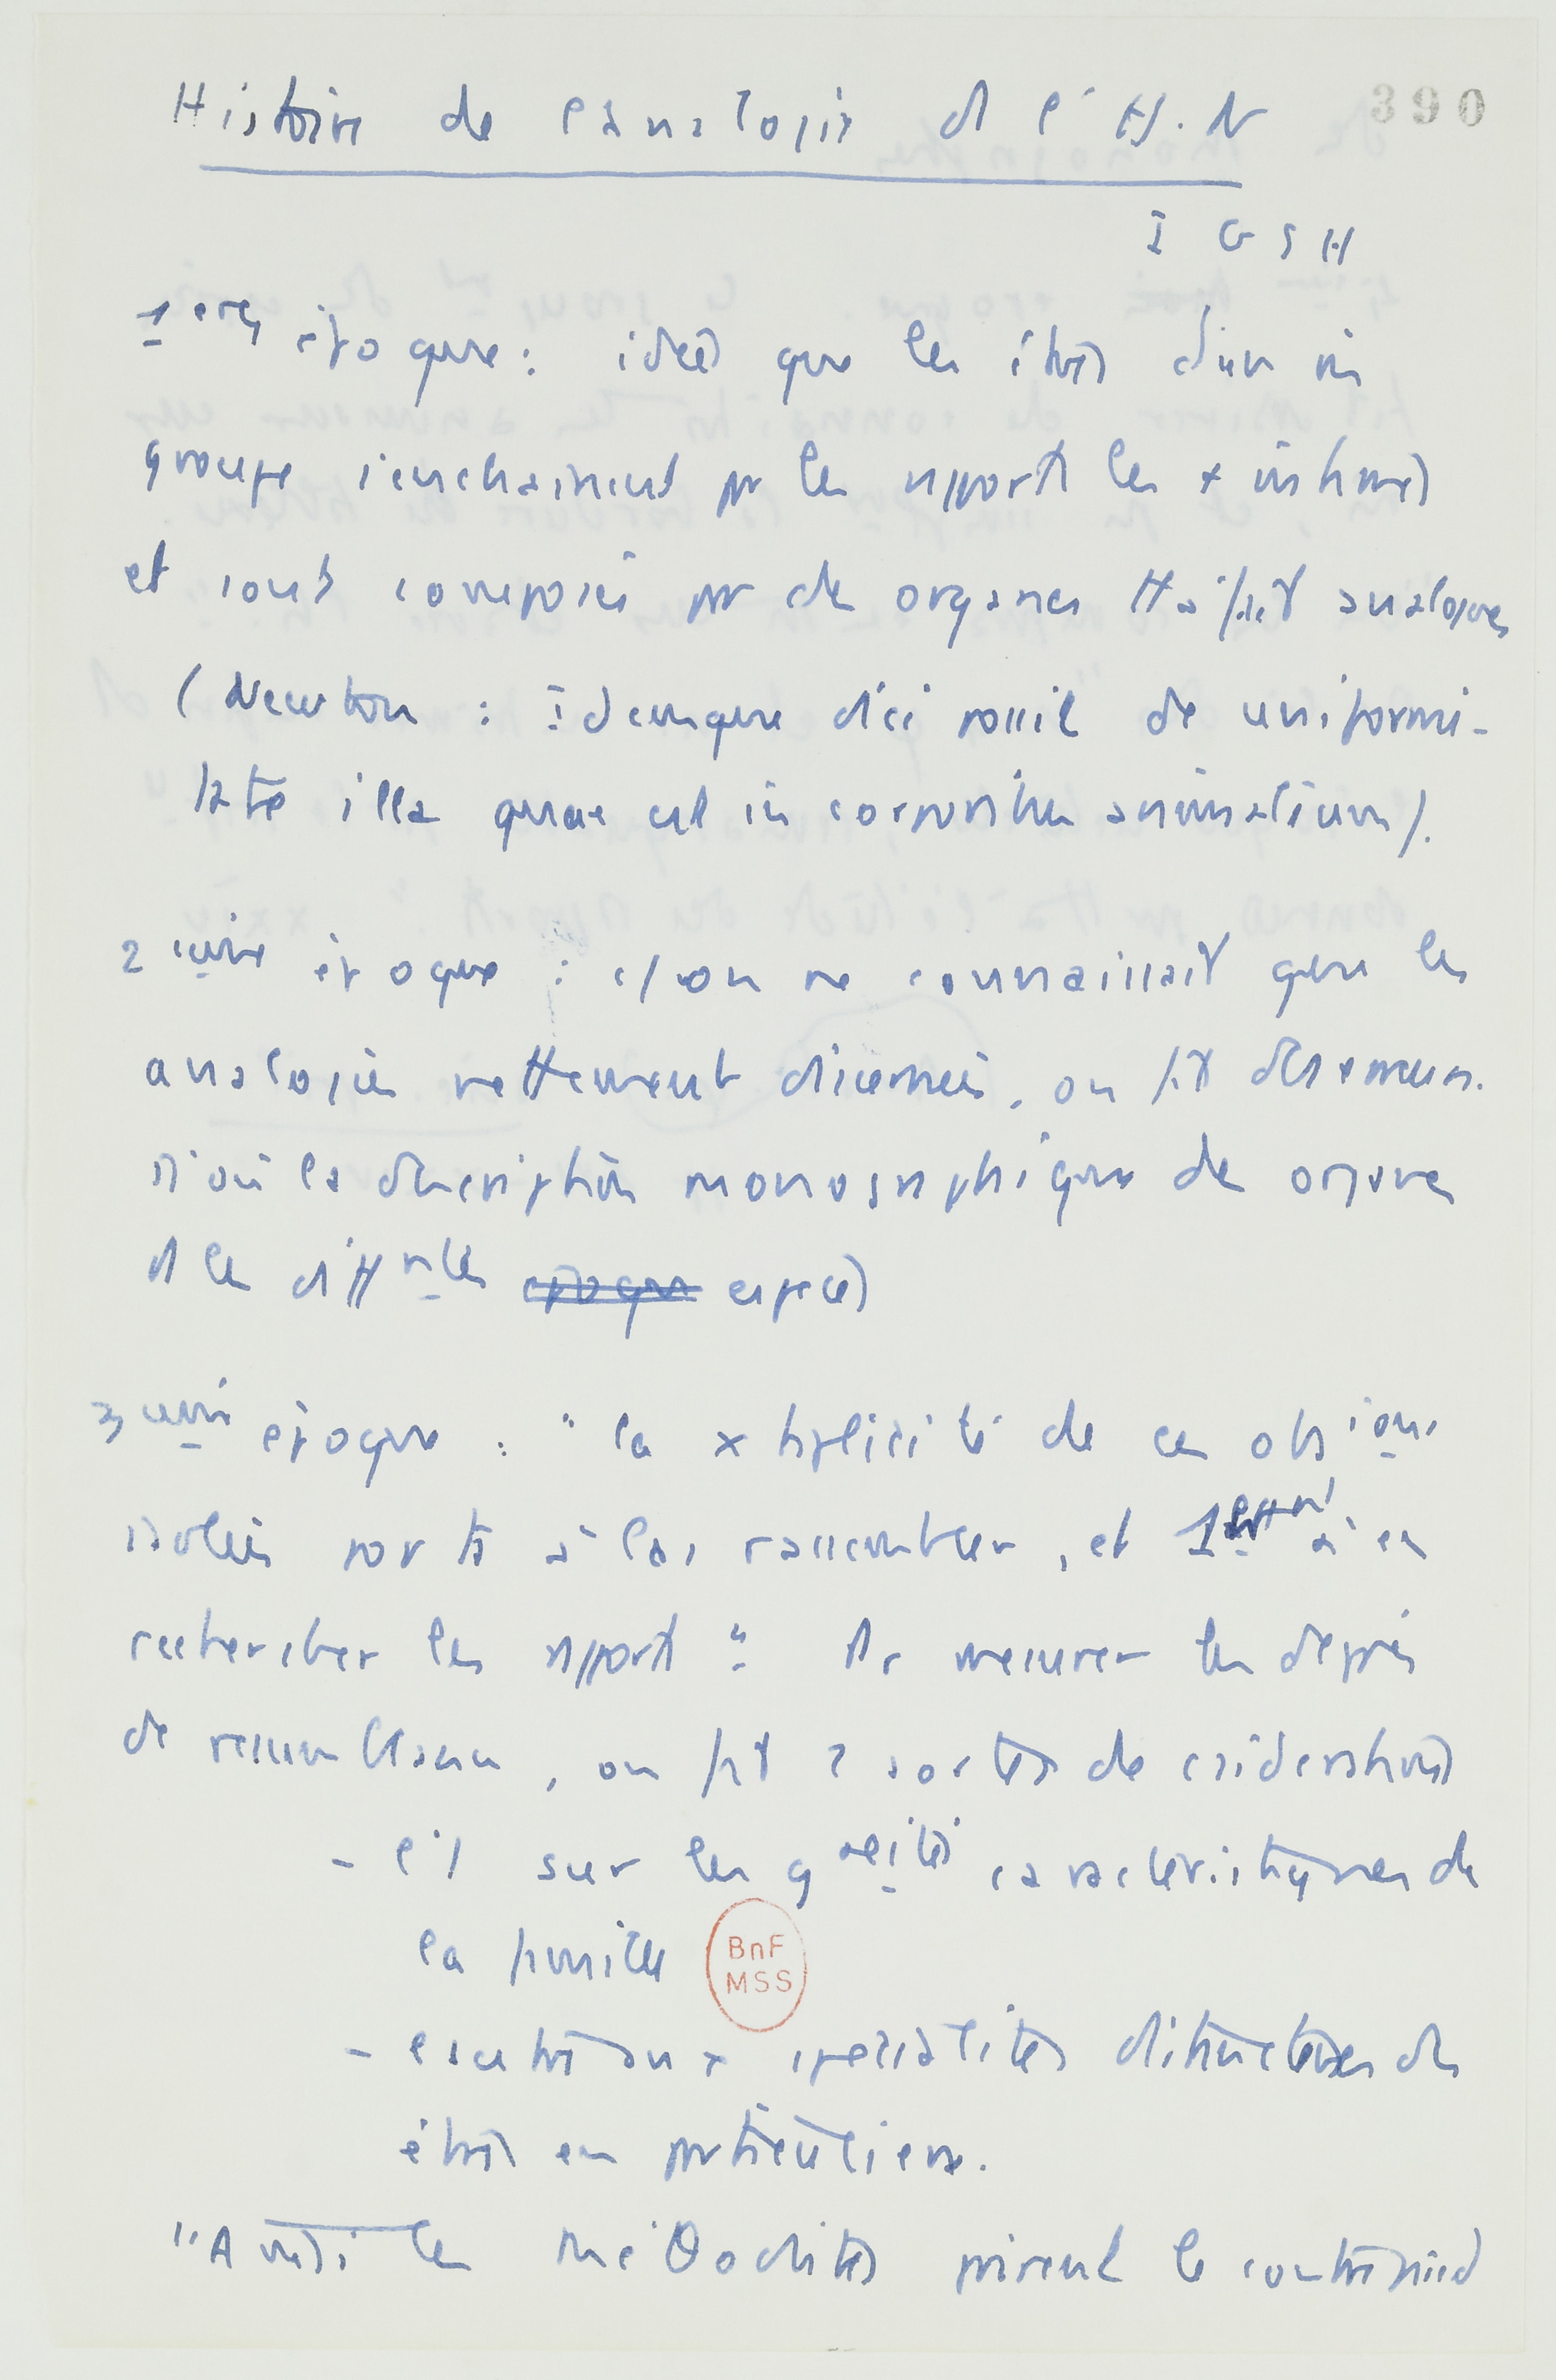 Histoire de l'analogie ds l'H.N
390
I G S H
1ere époque : idée que les êtres d'un m
groupe s'enchainent pr les rpports les + intimes
et sont composés pr des organes tt à fait analogues
(Newton : Idemque dici possit de uniformi-
tate illa quae est in corporibus animalium).
2ème époque : c/ on ne connaissait que les
analogies nettement discernées, on fit
d'où la description monographique des organes
ds les diff ntes époque espèces
3ème époque : "la xtiplicité de ces obs ions
isolées porte à les rassembler, et à en
rechercher les rpports". Pr mesurer les degrés
de ressemblance, on fit 2 sortes de csidérations
- l'1 sur les g alités caractéristiques de
la famille
BnF
MSS
- l'autre aux spécialités distinctives des
êtres en prticuliers.
"Aussi les méthodistes prirent le contrepied